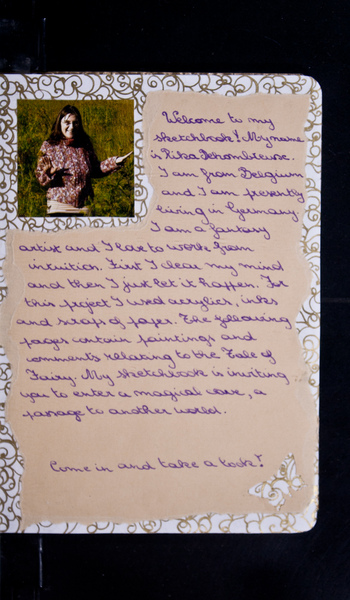 Welcome to my
sketchbook! My name
is Rika
I am from Belgium
and I am presently
living in Germany.
I am a fantasy
artist and I love to work from
intuition. First I clear my mind
and then I just let it happen. For
this project I used acrylics, inks
and scraps of paper. The following
pages contain paintings and
comments relating to the Tale of
Fairy. My sketchbook is inviting
you to enter a magical cave, a
passage to another world.
Come in and take a look!